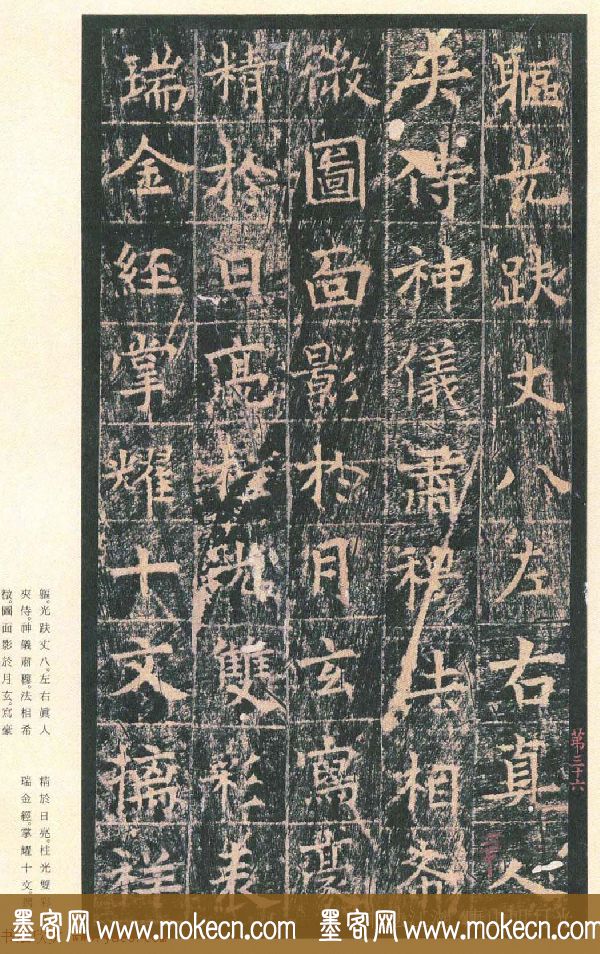 軀光趺丈八左右真人
夾侍神儀肅穆法相希
微圖面影於月玄寫豪
精於日亮柱光雙彩表
瑞金經掌耀十文摛祥
第三十六
軀。光趺丈八。左右眞人
夾侍。神儀肅穆。法相希
微。圖面影於月玄。寫豪
精於日亮。柱光雙彩
瑞金經。掌耀十文。
墨客网 www.mokecn.com 墨客网 www.mokecn.com 墨客网 www.mokecn.com